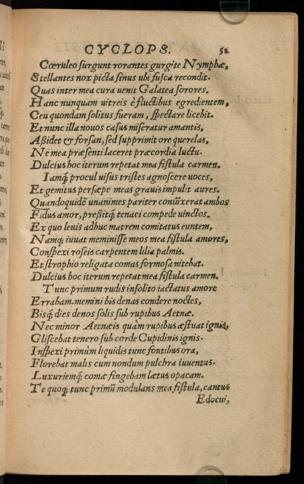 CYCLOPS. 52
Cœruleo surgunt rorantes gurgite Nymphæ,
Stellantes nox picta sinus ubi fusca recondit.
Quas inter mea cura venit Galatea sorores.
Hanc nunquam vitreis è fluctibus egredientem,
Ceu quondam solitus fueram, spectare licebit.
Et nunc illa novos casus miseratur amantis,
Aßidet & forsan, sed supprimit ore querelas,
Ne mea præsenti laceret præcordia luctu.
Dulcius hoc iterum repetat mea fistula carmen.
Iamq́; procul visus tristes agnoscere voces,
Et gemitus persæpe meas gravis impulit aures.
Quandoquidē unanimes pariter coniūxerat ambos
Fidus amor, presitq́; tenaci compede vinctos.
Ex quo levis adhuc matrem comitatus euntem,
Namq́; iuvat meminisse meos mea fistula amores,
Conspexi roseis carpentem lilia palmis.
Et strophio religata comas formosa nitebat.
Dulcius hoc iterum repetat mea fistula carmen.
Tunc primum rudis insolito iactatus amore
Errabam. memini bis denas condere noctes,
Bisq́; dies denos solis sub rupibus Aetnæ.
Nec minor Aetnæis quàm rupibus æstuat ignis,
Gliscebat tenero sub corde Cupidinis ignis.
Inspexi primùm liquidis tunc fontibus ora,
Florebat malis cum nondum pulchra iuventus.
Luxuriemq́; comæ fingebam lætus opacam.
Te quoq; tunc primū modulans mea fistula, cantus
Edocui,